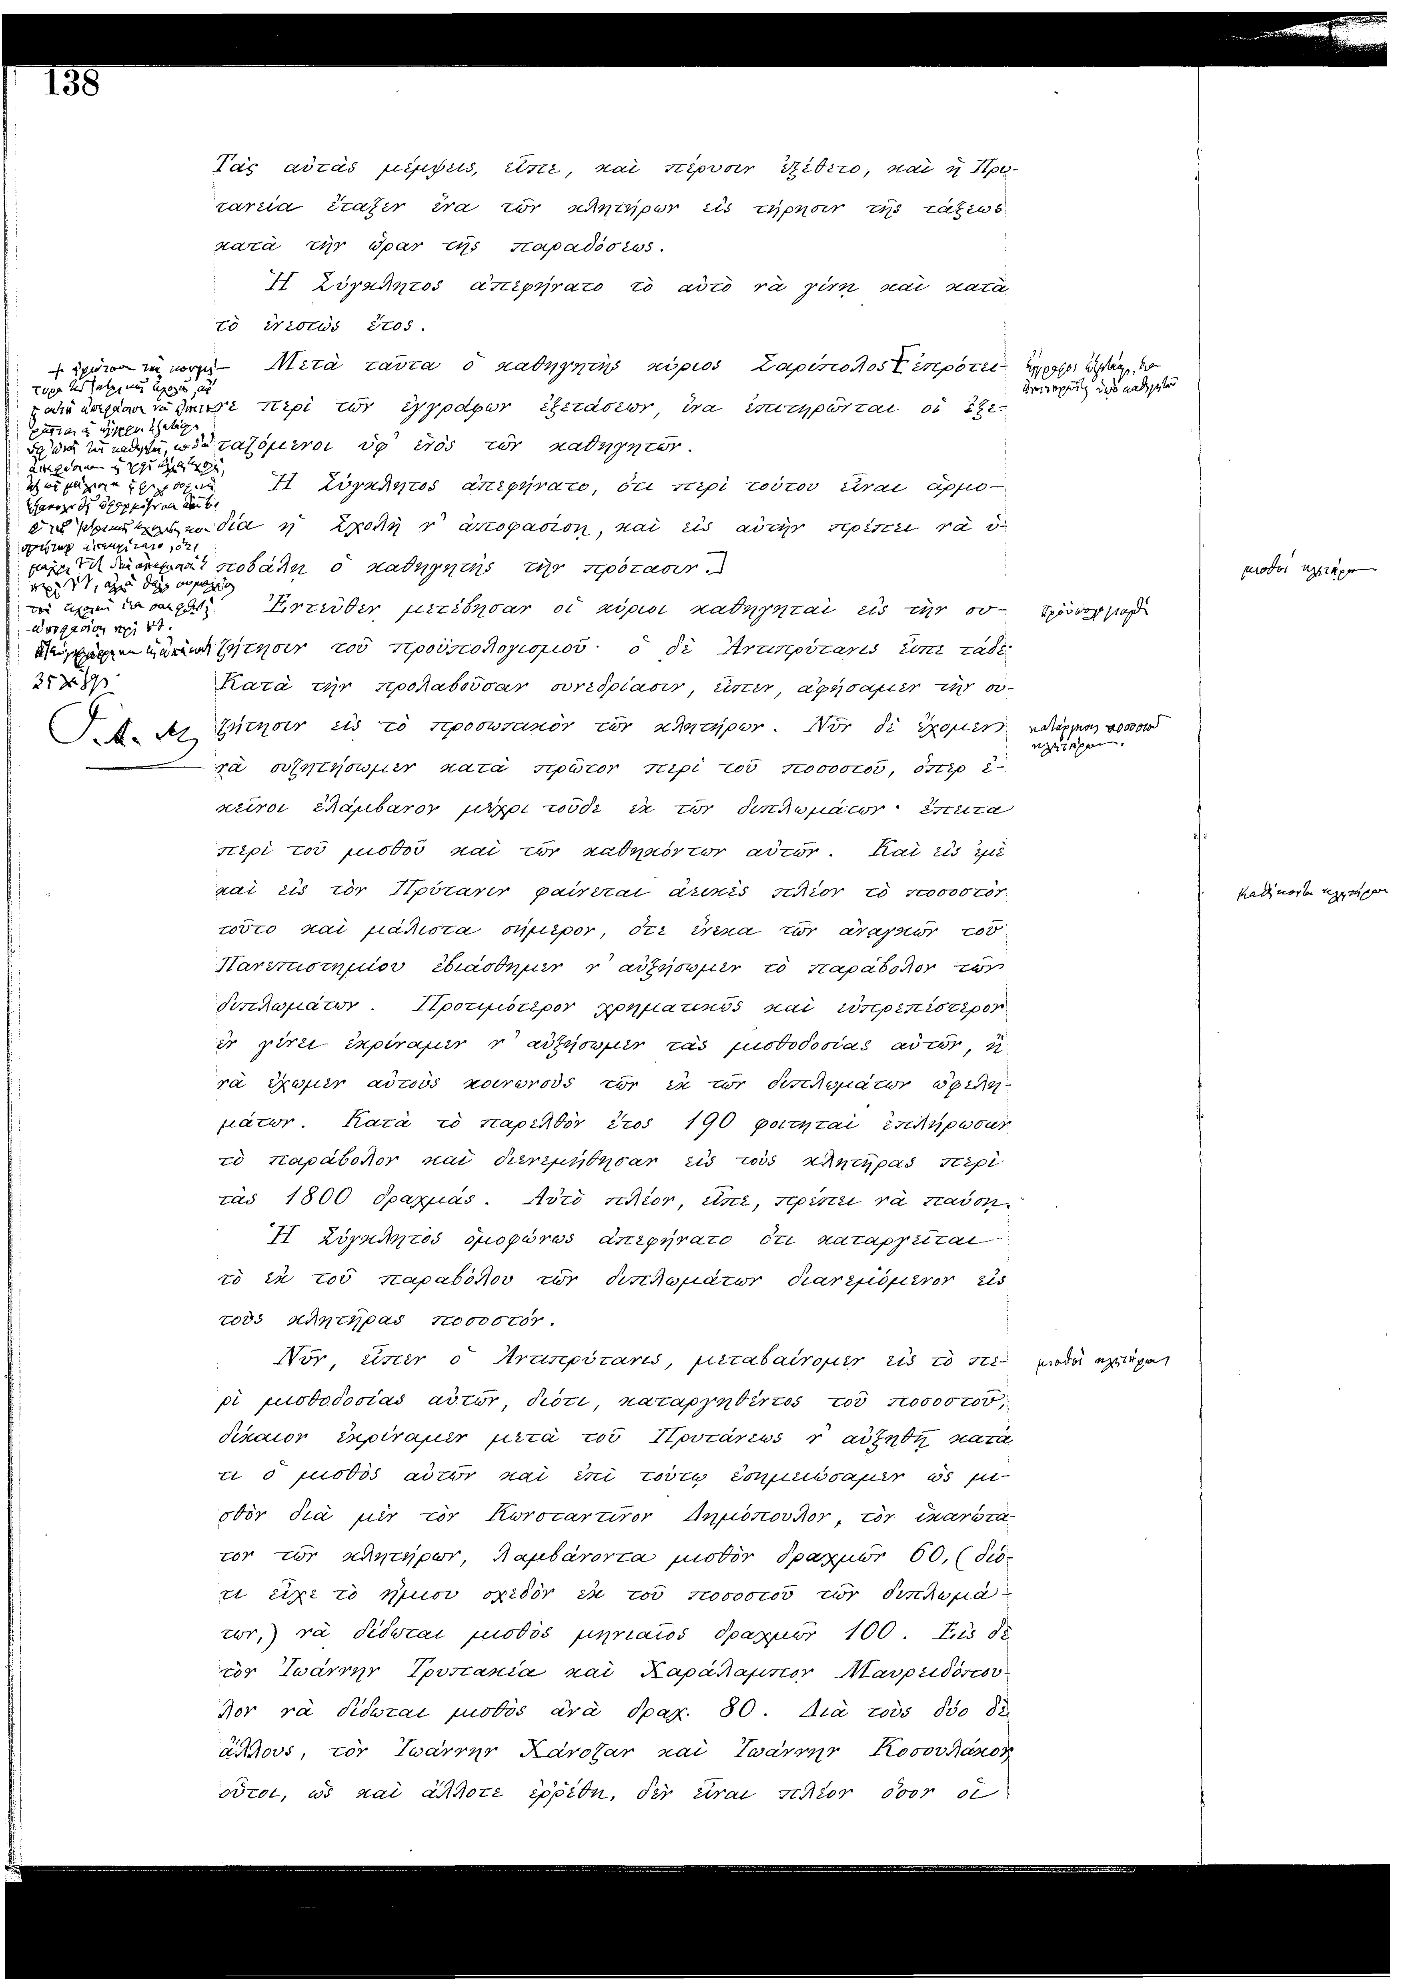 138
Τὰς αὐτὰς μέμψεις, εἶπε, καὶ πέρυσιν ἐξέθετο, καὶ ἡ Πρυ-
τανεία ἔταξεν ἕνα τῶν κλητήρων εἰς τήρησιν τῆς τάξεως
κατὰ τὴν ὥραν τῆς παραδόσεως.
Ἡ Σύγκλητος ἀπεφήνατο τὸ αὐτὸ νὰ γίνῃ καὶ κατὰ
τὸ ἐνεστὼς ἔτος.
Μετὰ ταῦτα ὁ καθηγητὴς κύριος Σαρίπολος [ἐπρότει-
νε περὶ τῶν ἐγγράφων ἐξετάσεων, ἵνα ἐπιτηρῶνται οἱ ἐξε-
ταζόμενοι ὑφ' ἑνὸς τῶν καθηγητῶν.
Ἡ Σύγκλητος ἀπεφήνατο, ὅτι περὶ τούτου εἶναι ἁρμο-
δία ἡ Σχολὴ ν' ἀποφασίσῃ, καὶ εἰς αὐτὴν πρέπει νὰ ὑ-
ποβάλῃ ὁ καθηγητὴς τὴν πρότασιν.]
Ἐντεῦθεν μετέβησαν οἱ κύριοι καθηγηταὶ εἰς τὴν συ-
ζήτησιν τοῦ προϋπολογισμοῦ· ὁ δὲ Ἀντιπρύτανις εἶπε τάδε
Κατὰ τὴν προλαβοῦσαν συνεδρίασιν, εἶπεν, ἀφήσαμεν τὴν συ-
ζήτησιν εἰς τὸ προσωπικὸν τῶν κλητήρων. Νῦν δὲ ἔχομεν
νὰ συζητήσωμεν κατὰ πρῶτον περὶ τοῦ ποσοστοῦ, ὅπερ ἐ-
κεῖνοι ἐλάμβανον μέχρι τοῦδε ἐκ τῶν διπλωμάτων· ἔπειτα
περὶ τοῦ μισθοῦ καὶ τῶν καθηκόντων αὐτῶν. Καὶ εἰς ἐμὲ
καὶ εἰς τὸν Πρύτανιν φαίνεται ἀεικὲς πλέον τὸ ποσοστὸν
τοῦτο καὶ μάλιστα σήμερον, ὅτε ἕνεκα τῶν ἀναγκῶν τοῦ
Πανεπιστημίου ἐβιάσθημεν ν' αὐξήσωμεν τὸ παράβολον τῶν
διπλωμάτων. Προτιμότερον χρηματικῶς καὶ εὐπρεπέστερον
ἐν γένει ἐκρίναμεν ν' αὐξήσωμεν τὰς μισθοδοσίας αὐτῶν, ἢ
νὰ ἔχωμεν αὐτοὺς κοινωνοὺς τῶν ἐκ τῶν διπλωμάτων ὠφελη-
μάτων. Κατὰ τὸ παρελθὸν ἔτος 190 φοιτηταὶ ἐπλήρωσαν
τὸ παράβολον καὶ διενεμήθησαν εἰς τοὺς κλητῆρας περὶ
τὰς 1800 δραχμάς. Αὐτὸ πλέον, εἶπε, πρέπει νὰ παύσῃ.
Ἡ Σύγκλητος ὁμοφώνως ἀπεφήνατο ὅτι καταργεῖται
τὸ ἐκ τοῦ παραβόλου τῶν διπλωμάτων διανεμόμενον εἰς
τοὺς κλητῆρας ποσοστόν.
Νῦν, εἶπεν ὁ Ἀντιπρύτανις, μεταβαίνομεν εἰς τὸ πε-
ρὶ μισθοδοσίας αὐτῶν, διότι, καταργηθέντος τοῦ ποσοστοῦ,
δίκαιον ἐκρίναμεν μετὰ τοῦ Πρυτάνεως ν' αὐξηθῇ κατά
τι ὁ μισθὸς αὐτῶν καὶ ἐπὶ τούτῳ ἐσημειώσαμεν ὡς μι-
σθὸν διὰ μὲν τὸν Κωνσταντῖνον Δημόπουλον, τὸν ἱκανώτα-
τον τῶν κλητήρων, λαμβάνοντα μισθὸν δραχμῶν 60, (διό-
τι εἶχε τὸ ἥμισυ σχεδὸν ἐκ τοῦ ποσοστοῦ τῶν διπλωμά-
των,) νὰ δίδωται μισθὸς μηνιαῖος δραχμῶν 100. Εἰς δὲ
τὸν Ἰωάννην Τρυπακέα καὶ Χαράλαμπον Μαυρειδόπου-
λον νὰ δίδωται μισθὸς ἀνὰ δραχ. 80. Διὰ τοὺς δύο δὲ
ἄλλους, τὸν Ἰωάννην Χάνοζαν καὶ Ἰωάννην Κοσουλάκον
οὗτοι, ὡς καὶ ἄλλοτε ἐῤῥέθη, δὲν εἶναι πλέον ὅσον οἱ
Γ. Α. Μ
προϋπολογισμὸς
κατάργησις ποσοστοῦ
κλητήρων.
μισθοὶ κλητήρων
μισθοὶ κλητήρων
καθήκοντα κλητήρων